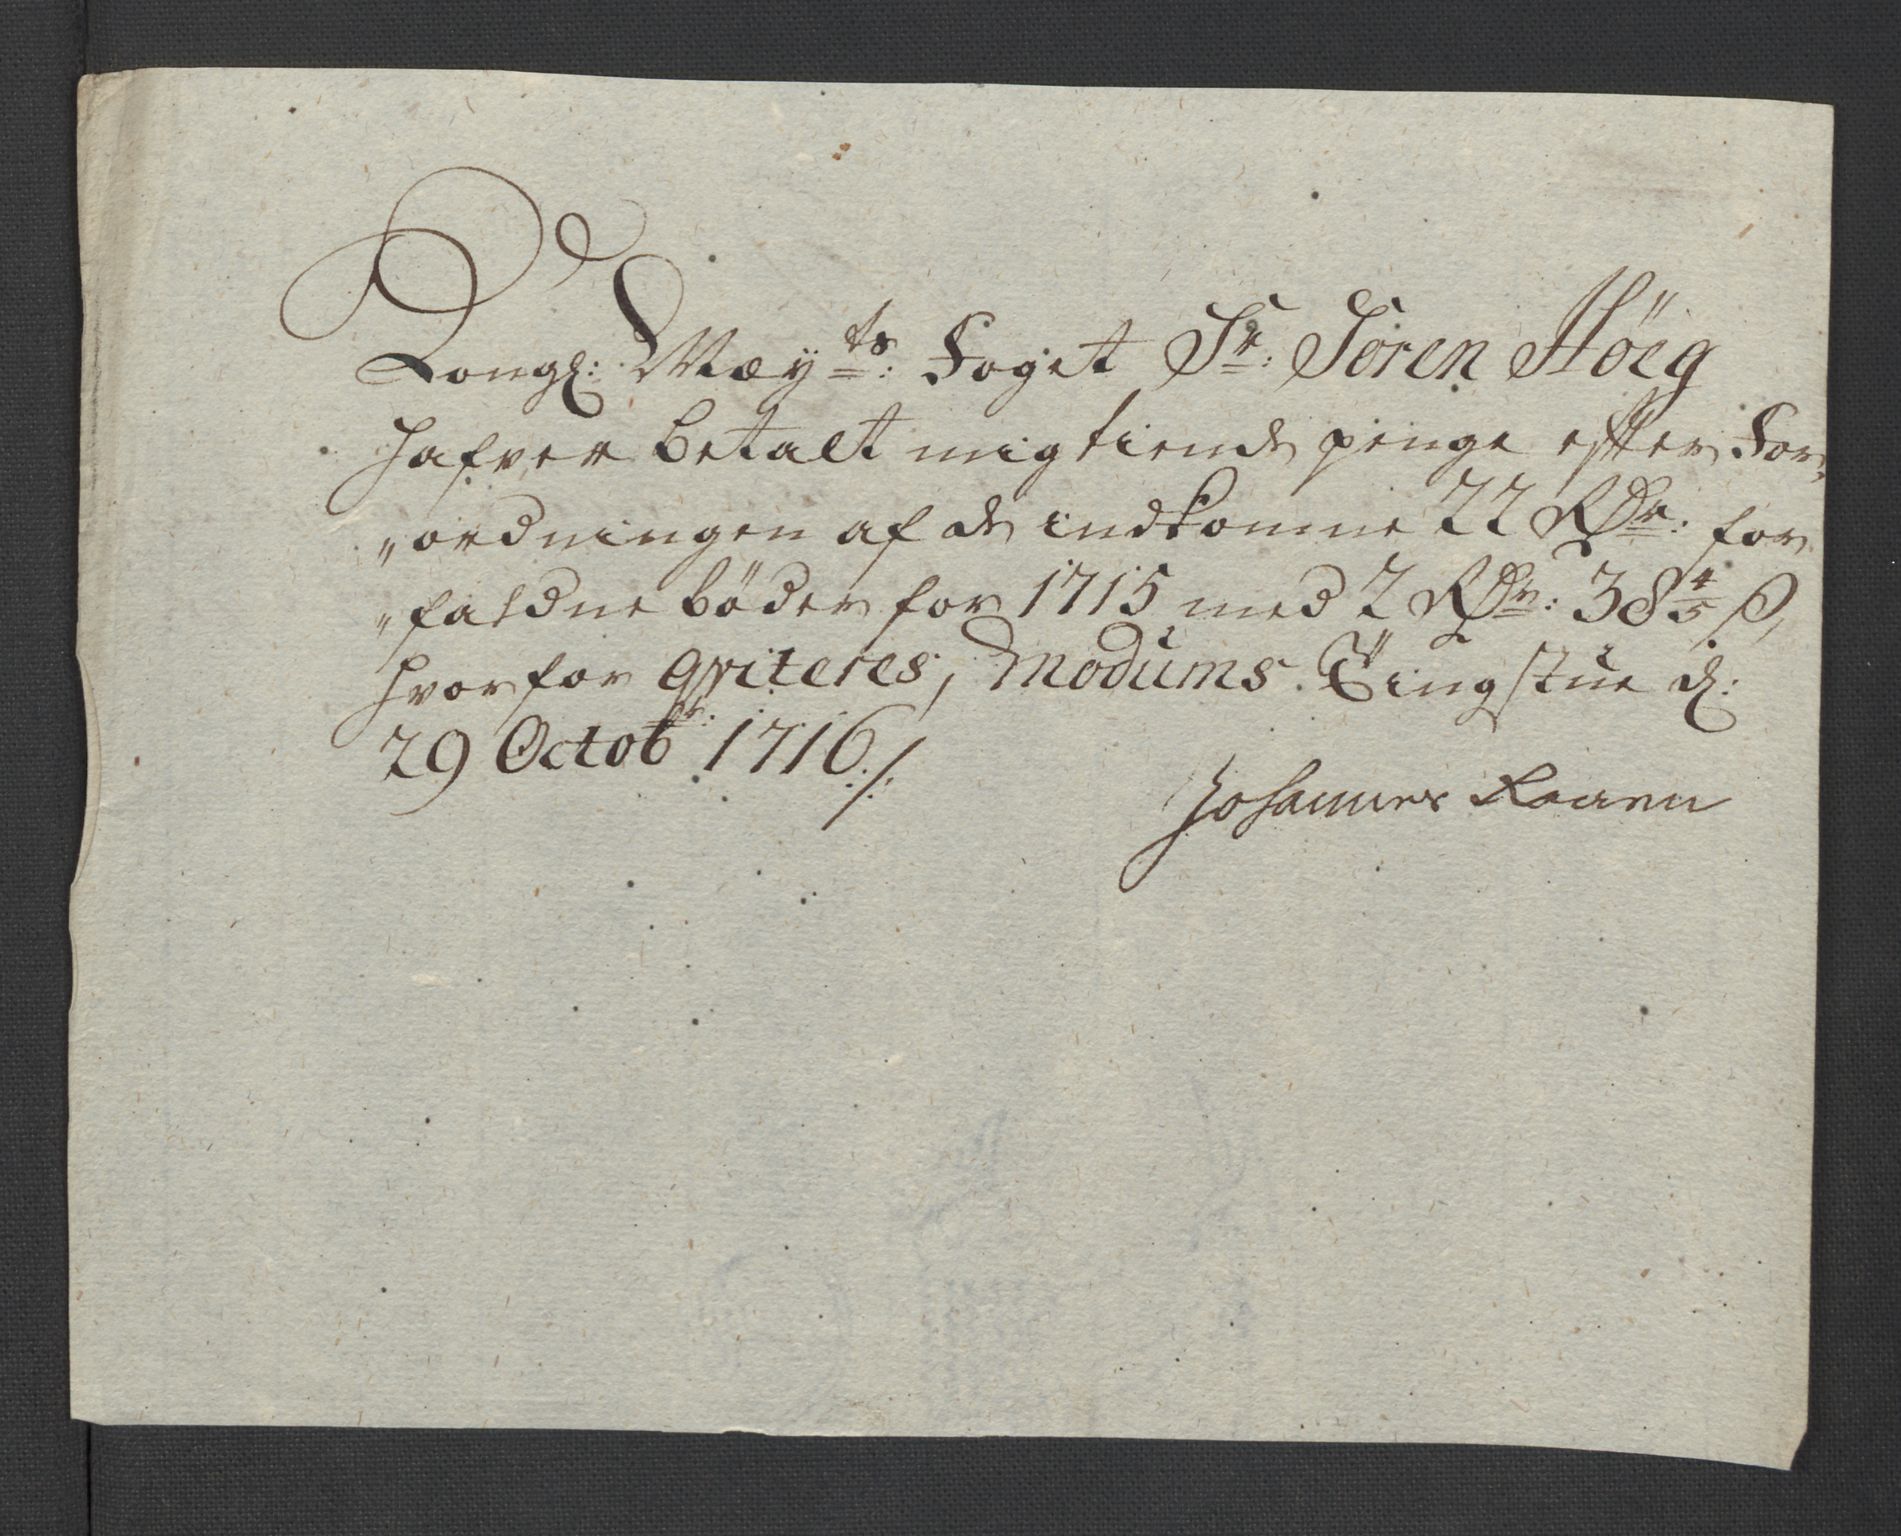 Kongl: Mæyts: Foget Sr: Sören Höeg
hafver betalt mig tiende penge efter For-
„ordningen af de indkomne 22 Rdr: for
„faldne böder for 1715 med 2 Rdr: 38 4/5 ß,
hvorfor qviteres, Modums Tingstue d:
29 Octobr: 1716 ./.
Johannes Raaen